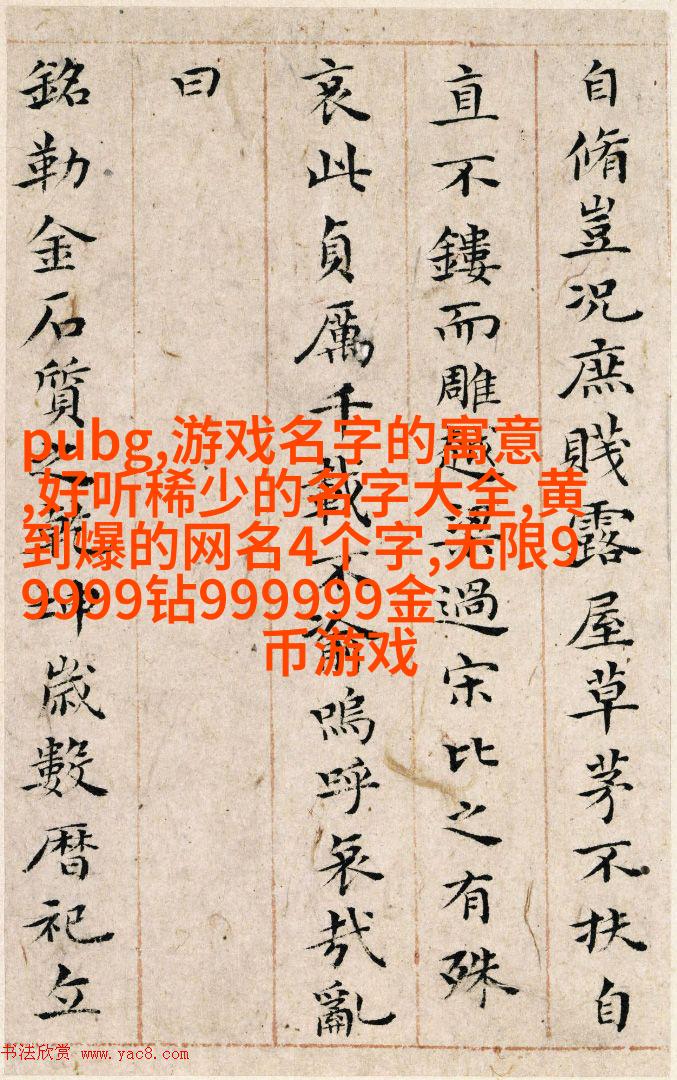 自脩豈況庶賤露屋草茅不扶自
直不鏤而雕越梁過宋比之有殊
哀此貞厲千載不渝嗚呼哀哉亂
曰
銘勒金石質之乾坤歲數暦祀立
pubg,游戏名字的寓意
,好听稀少的名字大全,黄
到爆的网名4个字,无限9
9999钻999999金
币游戏
书法欣赏 www.yac8.com